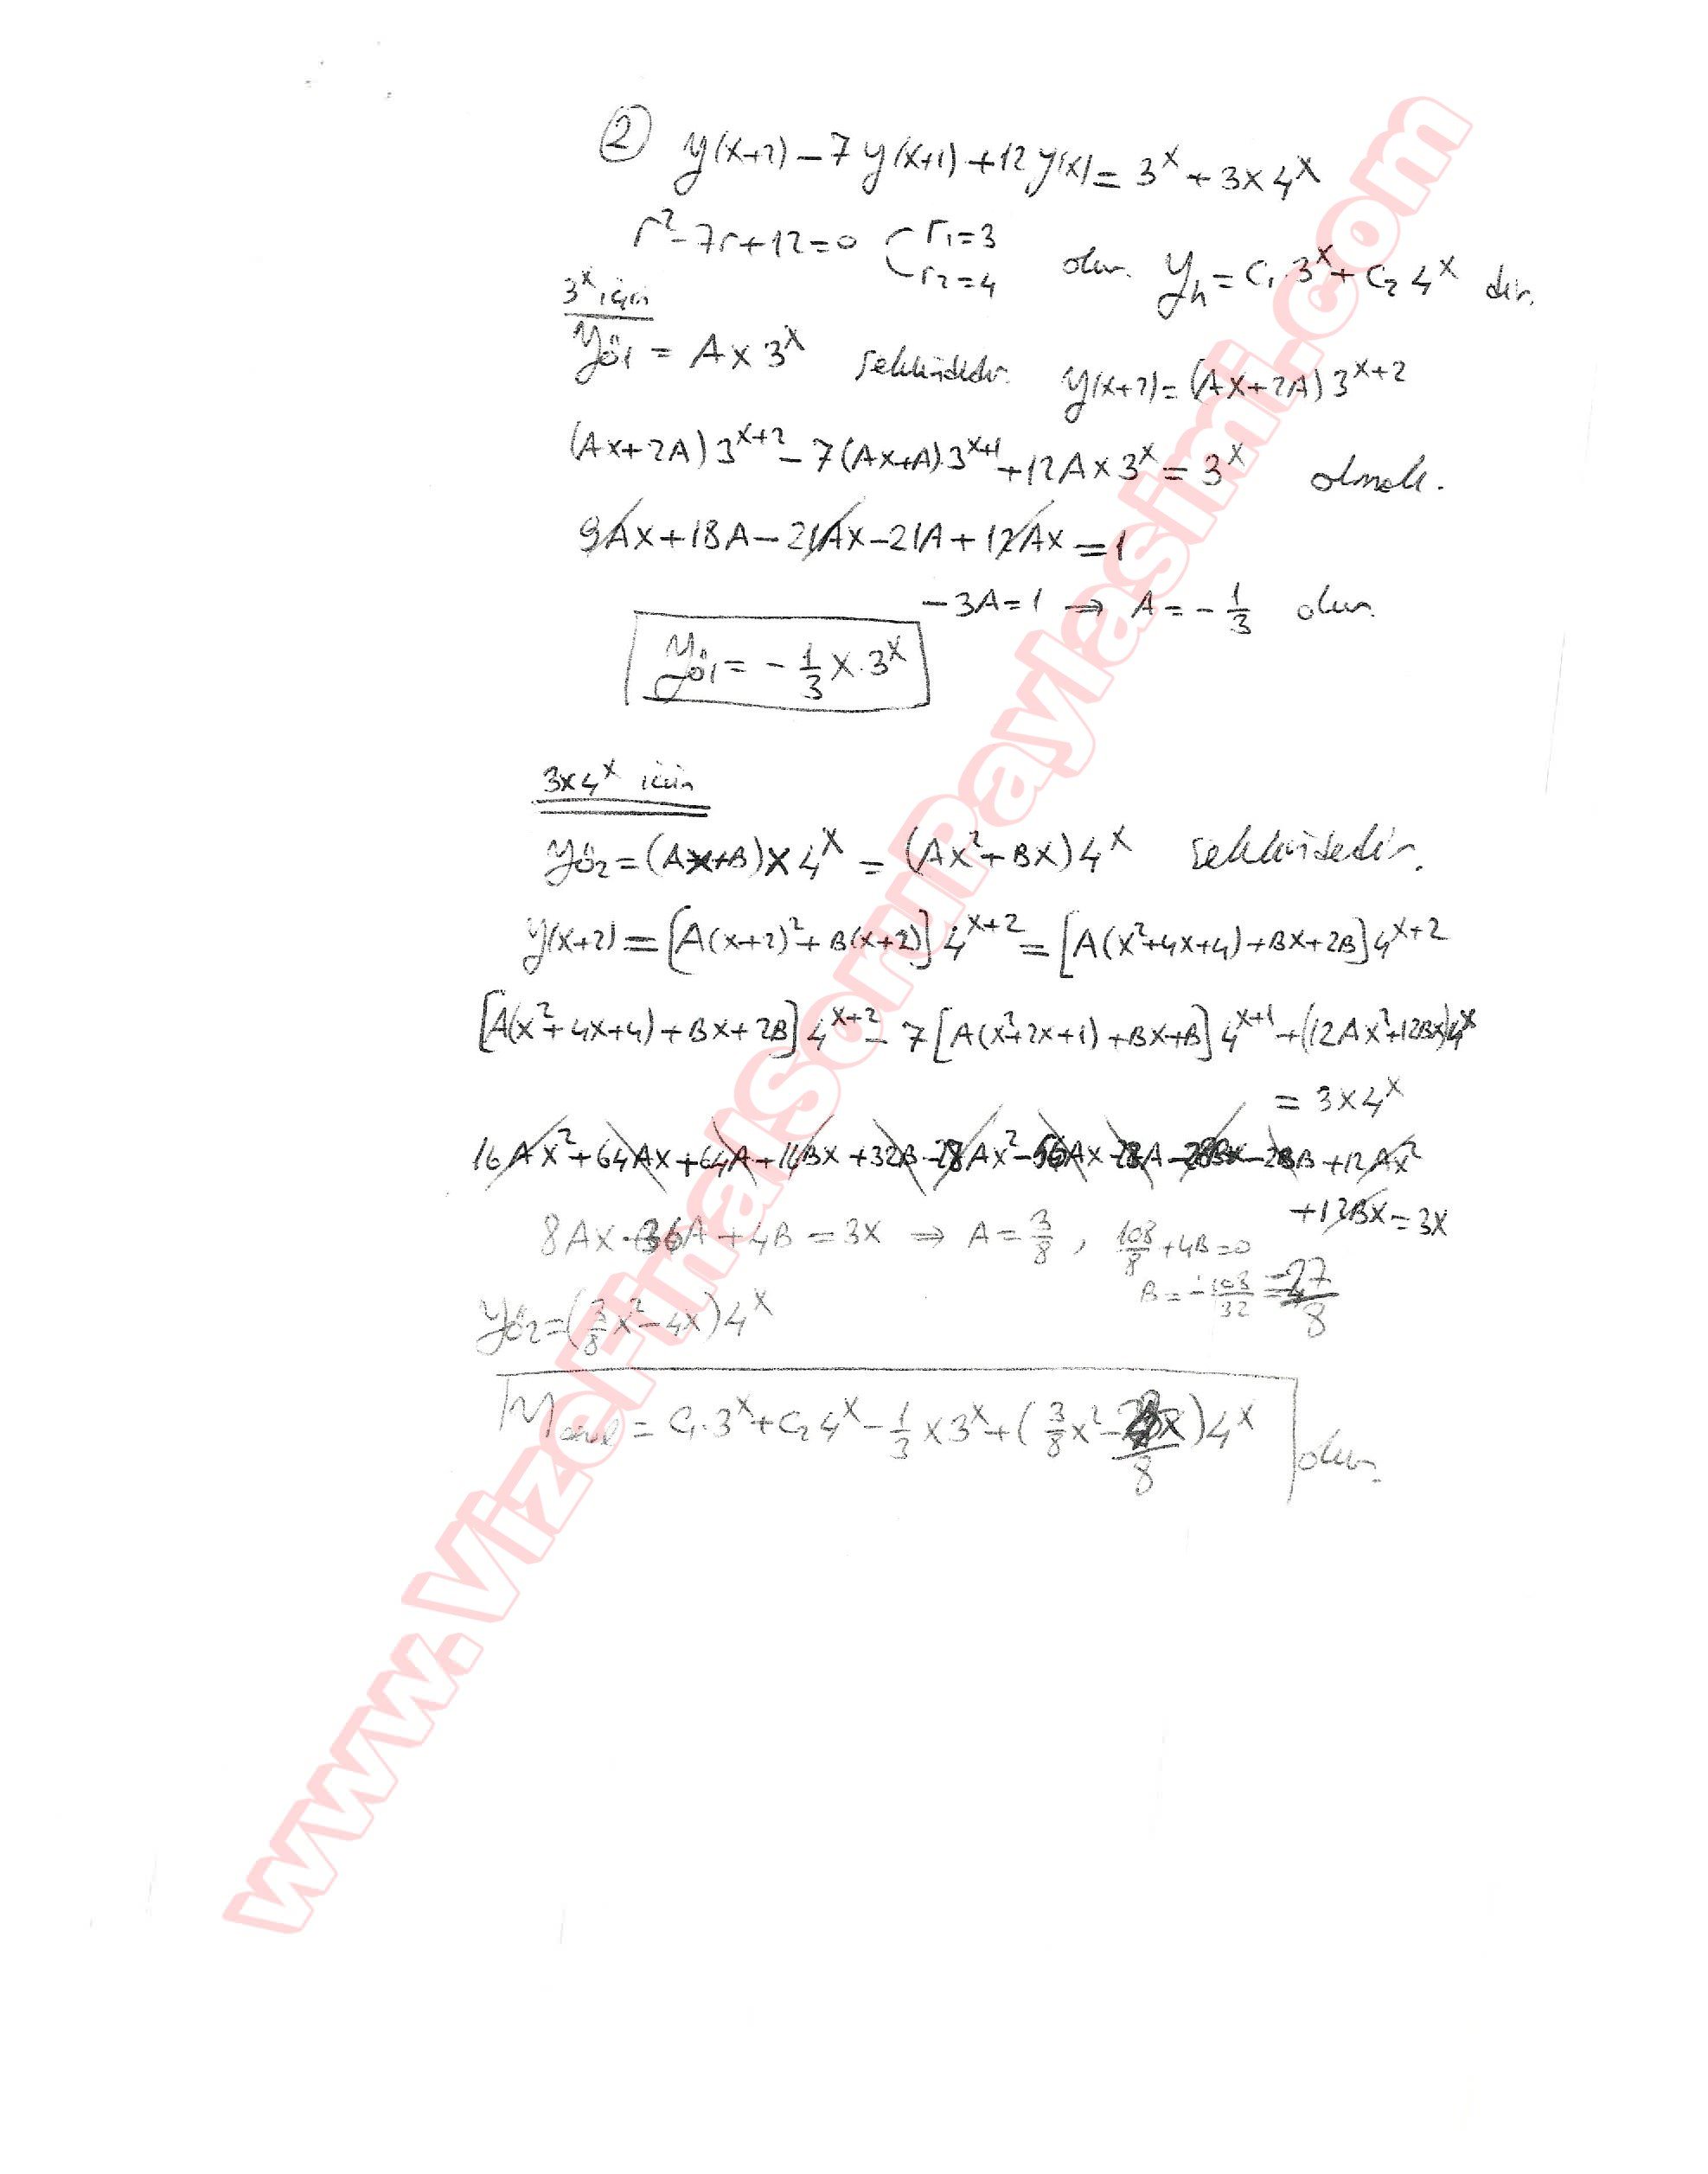 ② y(x+2) – 7 y(x+1) + 12 y(x) = 3^x + 3x 4^x
r² - 7r + 12 = 0 r₁ = 3 r₂ = 4 olur. y_h = C₁ 3^x + C₂ 4^x dir.
3^x için
y_ö1 = A x 3^x şeklindedir. y(x+2) = (Ax+2A) 3^(x+2)
(Ax+2A) 3^(x+2) – 7 (Ax+A) 3^(x+1) + 12 A x 3^x = 3^x olmalı.
9Ax + 18A – 21Ax – 21A + 12Ax = 1
– 3A = 1 ⇒ A = – 1/3 olur.
y_ö1 = – 1/3 x . 3^x
3x4^x için
y_ö2 = (Ax+B) x 4^x = (Ax² + Bx) 4^x şeklindedir.
y(x+2) = [A(x+2)² + B(x+2)] 4^(x+2) = [A(x²+4x+4) + Bx + 2B] 4^(x+2)
[A(x²+4x+4) + Bx + 2B] 4^(x+2) – 7 [A(x²+2x+1) + Bx + B] 4^(x+1) + (12Ax² + 12Bx) 4^x
= 3x4^x
16Ax² + 64Ax + 64A + 16Bx + 32B - 28Ax² - 56Ax - 28A - 28Bx - 28B + 12Ax²
+ 12Bx = 3x
8Ax + 36A + 4B = 3x ⇒ A = 3/8 , 108/8 + 4B = 0
B = - 108/32 = - 27/8
y_ö2 = (3/8 x² – 4x) 4^x
y = C₁ . 3^x + C₂ 4^x – 1/3 x 3^x + (3/8 x² – /8) 4^x olur.
www.VizeFinalSoruPaylasimi.com